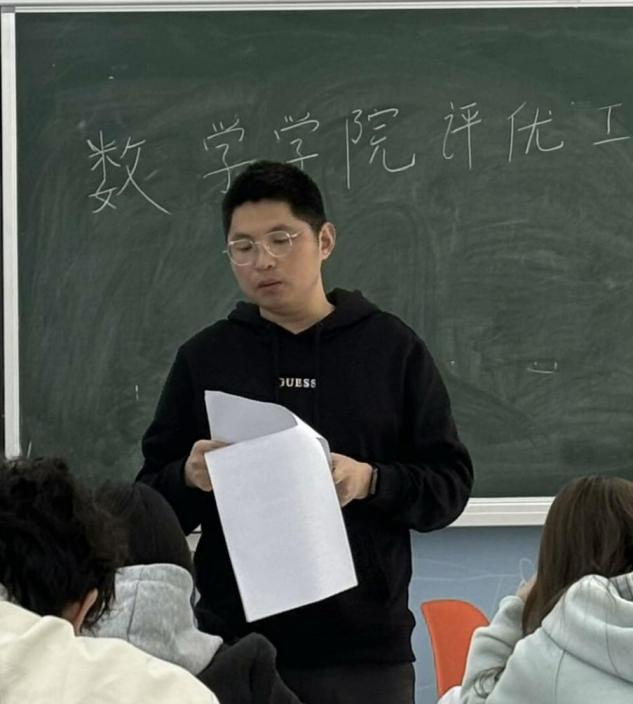 数学学院评优工
GUESS